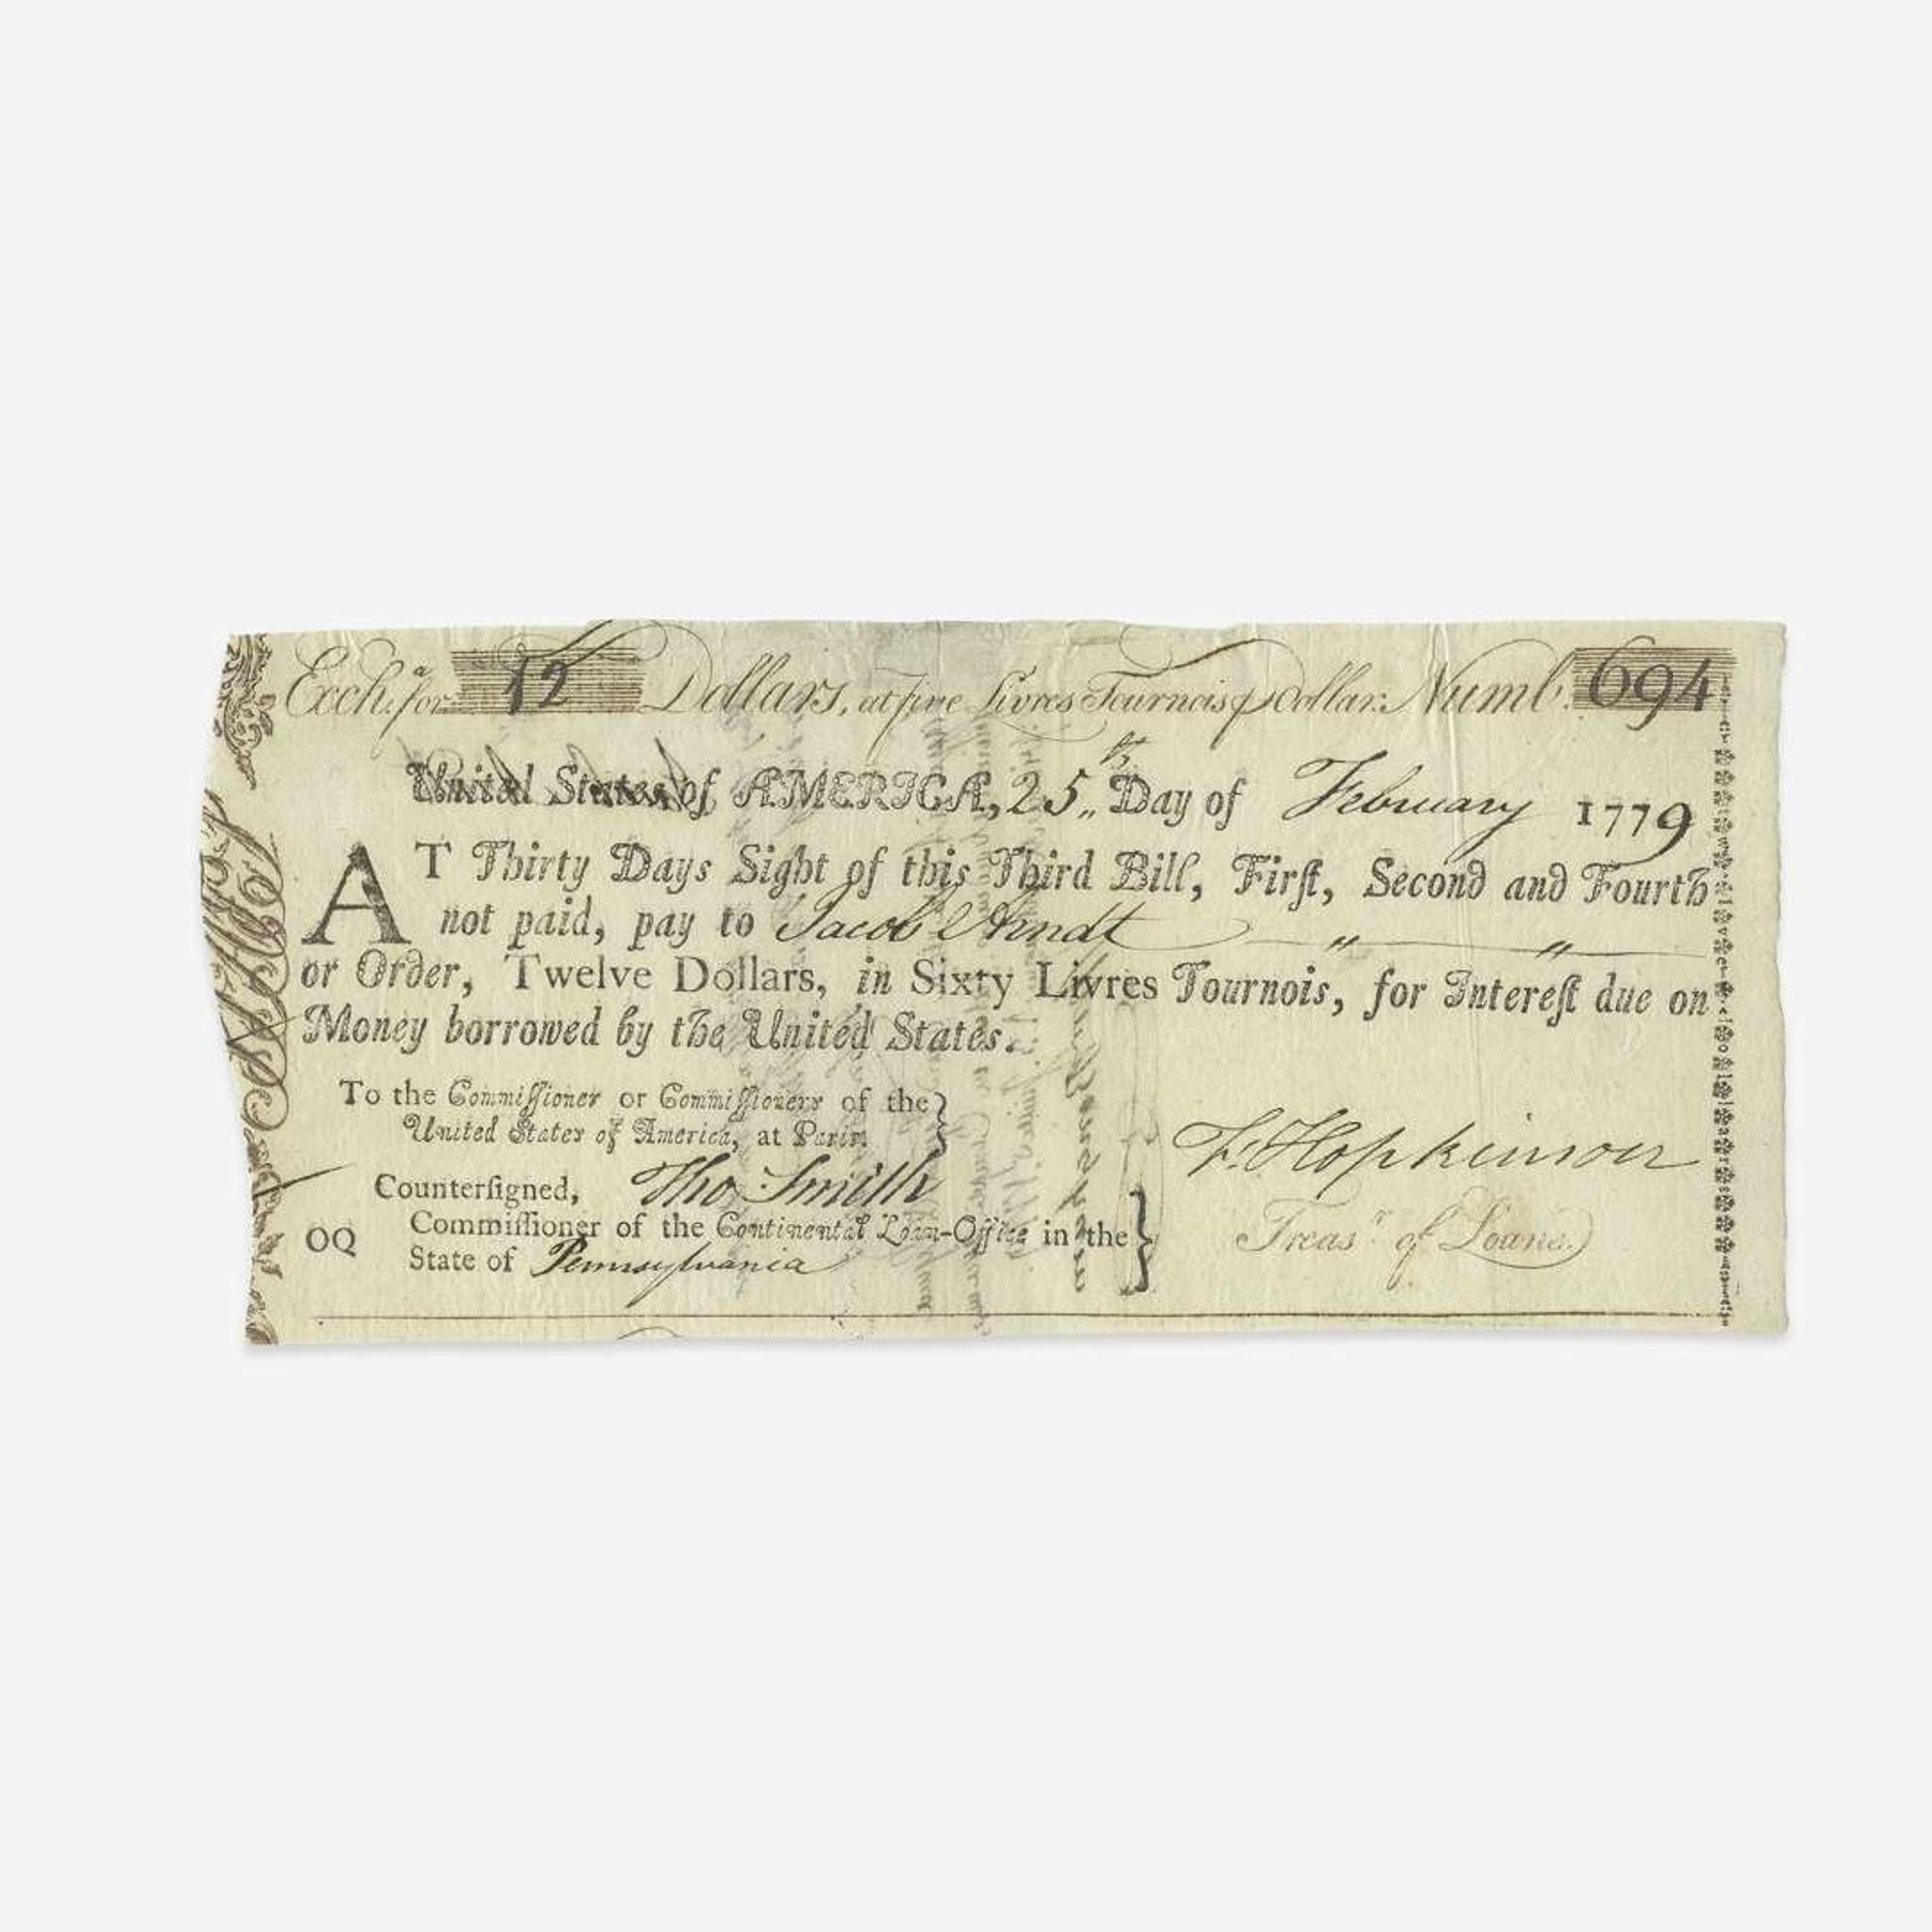 Exchᵃ. for 12 Dollars, at five Livres Tournois ꝑ Dollar: Numb. 694
United States of AMERICA, 25th Day of February 1779
AT Thirty Days Sight of this Third Bill, Firſt, Second and Fourth
not paid, pay to Jacob Arndt
or Order, Twelve Dollars, in Sixty Livres Tournois, for Intereſt due on
Money borrowed by the United States.
To the Commiſſioner or Commiſſioners of the
United States of America, at Paris.
Counterſigned, Tho Smith
OQ Commiſſioner of the Continental Loan-Office in the
State of Pennsylvania
F. Hopkinson
Treasʳ. of Loans